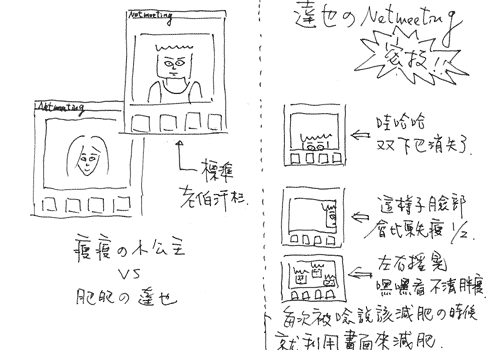 Netmeeting
Netmeeting
標準
老伯汗衫
瘦瘦の小公主
VS
肥肥の達也
達也のNetmeeting
密技!!!
哇哈哈
双下巴消失了
這樣子臉部
會比原先瘦1/2
左右搖晃
嘿嘿看不清胖瘦
每次被唸說該減肥の時候
就利用畫面來減肥.